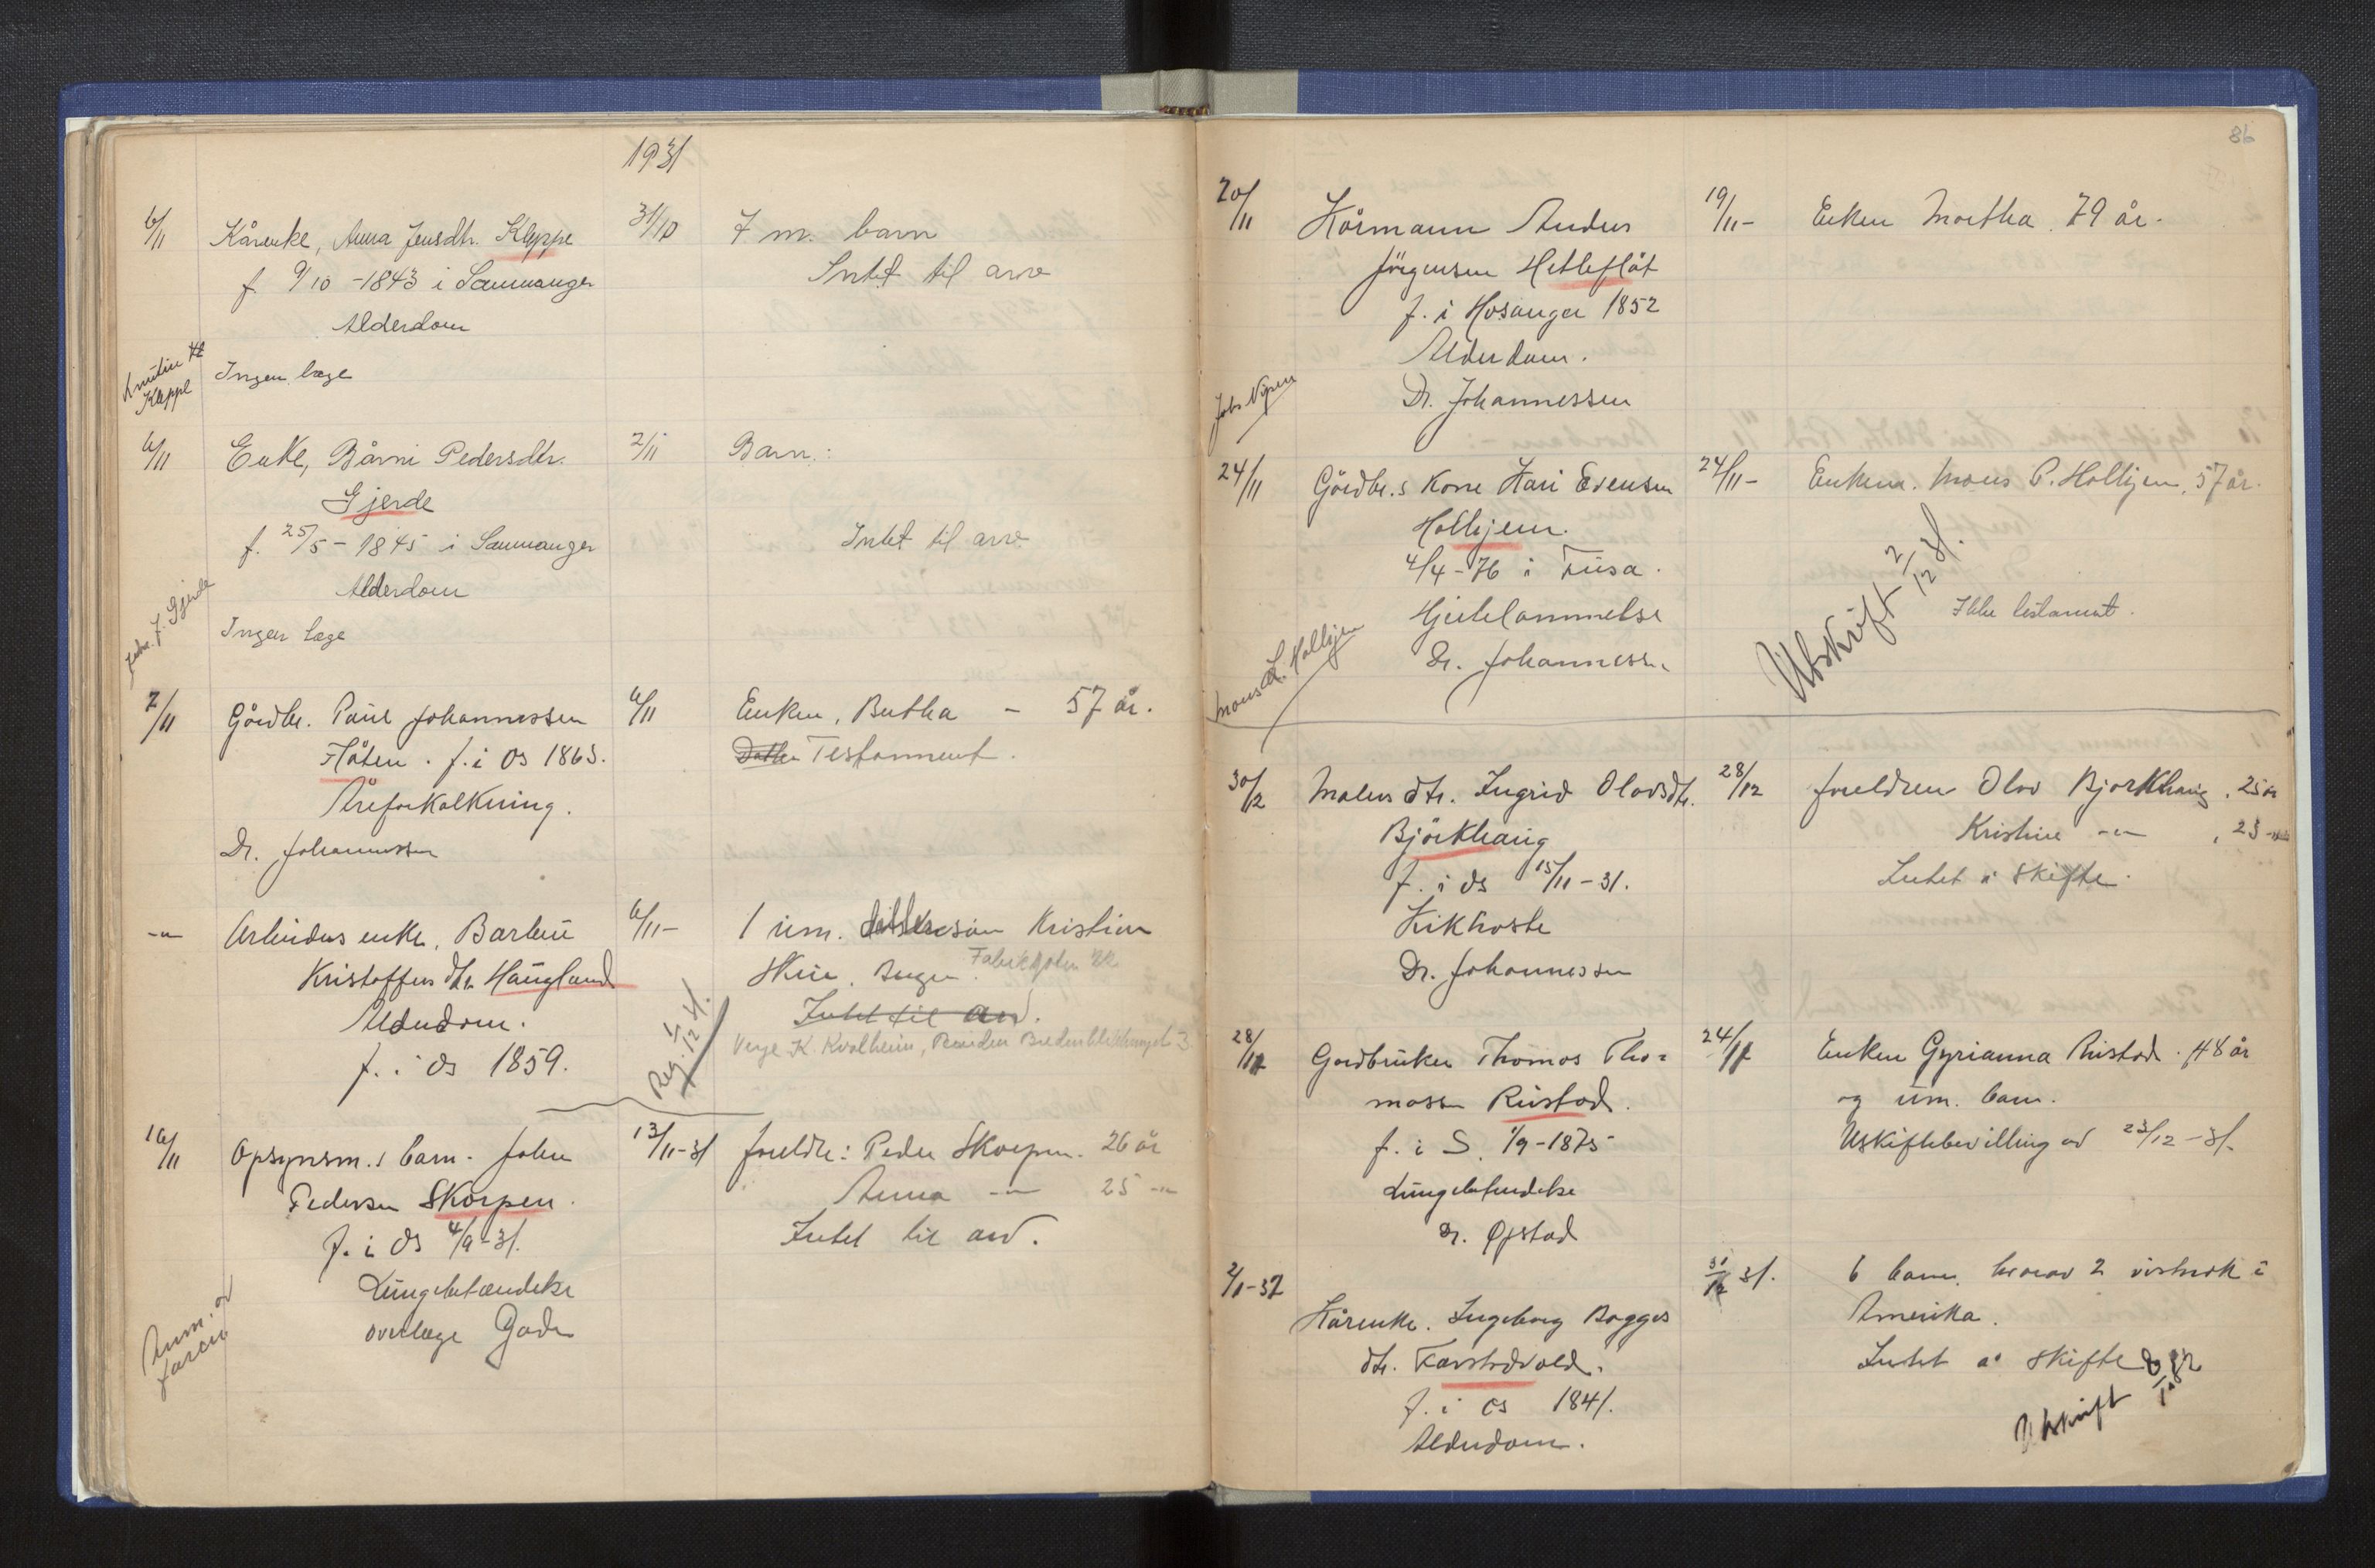 1931
6/11 Kårenke, Anna Jensdtr. Kleppe 31/10 7 m. barn
f. 9/10 - 1843 i Sammanger Intet til arv
Alderdom
Ingen læge
Kleppe
6/11 Enke, Bårni Pedersdtr. 2/11 Barn:
Gjerde
f. 25/5 - 1845 i Sammanger Intet til arv
Alderdom
Ingen læge
J. Gjerde
7/11 Gårdbr. Paul Johannessen 6/11 Enken, Bertha - 57 år.
Flåten. f. i Os 1863. Testamment.
Åreforkalkning.
Dr. Johannessen
-"- Arbeiders enke, Barbru 6/11 - 1 um. sön Kristian
Kristoffersdtr. Haugland
Alderdom. Intet til arv.
f. i Os 1859. Verge K. Kvalheim,
Reg. 5/12 31.
16/11 Opsynsm.s barn. John 13/11-31 foreldre: Peder Skorpen. 26 år
Pedersen Skorpen. Anna -"- 25 -"-
f. i Os 4/9-31. Intet til arv.
Lungebetændelse
overlæge Gade
Anm. av
faren
86
20/11 Kårmann Anders 19/11- Enken Martha 79 år.
Jörgensen Hetleflåt
f. i Hosanger 1852
Alderdom.
Dr. Johannessen
24/11 Gårdbr.s kone Kari Evensen 24/11- Enkem. Mons P. Holljem, 57 år.
Holljem.
4/4-76 i Fusa.
Hjertelammelse Ikke testament.
Dr. Johannessen
Utskrift 2/12 31.
Mons Holljem
30/12 Malers dtr. Ingrid Olavsdtr. 28/12 foreldren Olav Bjørkhaug, 25 år
Björkhaug Kristine -"-, 23 -"-
f. i Os 15/11-31. Intet å skifte.
Kikhoste
Dr. Johannessen
28/12 Gardbruker Thomas Tho= 24/12 Enken Gyrianna Rustad. 48 år
massen Rustad. og um. barn.
f. i S. 1/9-1875 Uskiftebevilling av 23/12-31.
Lungebetendelse
Dr. Øpstad
2/1-32 31/12 31. 6 barn, herav 2 vistnok i
Kårenke. Ingeborg Bagges Amerika.
dtr. Intet å skifte
f. i Os 1841.
Alderdom.
Utskrift